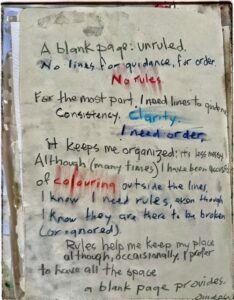 A blank page: unruled.
No lines for guidance, for order
No rules.
For the most part, I need lines to
Consistency. Clarity.
I need order.
It keeps me organized: its less messy
Although (many times) I have been accused
of colouring outside the lines
I know I need rules, even though
I know they are there to be broken
(or ignored)
Rules help me keep my place
although, occasionally, I prefer
to have all the space
a blank page provides.